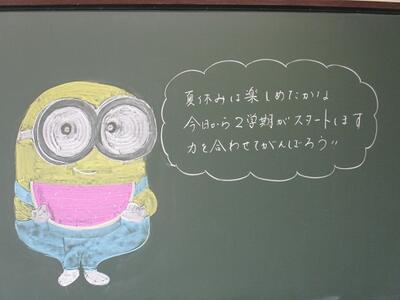 夏休みは楽しめたかな
今日から2学期がスタートします
力を合わせてがんばろう!!